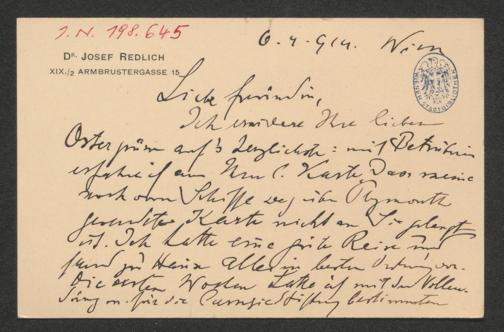 J. N. 198.645
DR. JOSEF REDLICH
XIX./2 ARMBRUSTERGASSE 15
6. 4. 914. Wien
Liebe Freundin,
Ich erwidere Ihre lieben
Ostergrüsse auf's herzlichste: mit Betrübnis
erfahre ich aus Ihrer l. Karte, dass meine
noch vom Schiffe weg über Plymouth
gesendete Karte nicht an Sie gelangt
ist. Ich hatte eine gute Reise und
fand zu Hause alles in bester Ordnung vor.
Die ersten Wochen habe ich mit der Vollen-
dung m. für die Carnegie Stiftung bestimmten